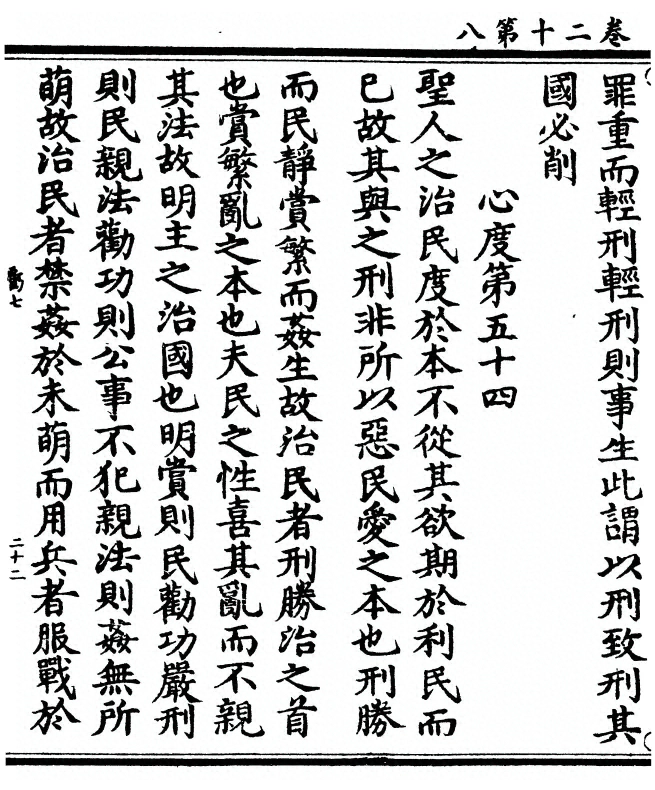 卷二十第八
罪重而輕刑輕刑則事生此謂以刑致刑其
國必削
心度第五十四
聖人之治民度於本不從其欲期於利民而
已故其與之刑非所以惡民愛之本也刑勝
而民靜賞繁而姦生故治民者刑勝治之首
也賞繁亂之本也夫民之性喜其亂而不親
其法故明主之治國也明賞則民勸功嚴刑
則民親法勸功則公事不犯親法則姦無所
萌故治民者禁姦於未萌而用兵者服戰於
二十二